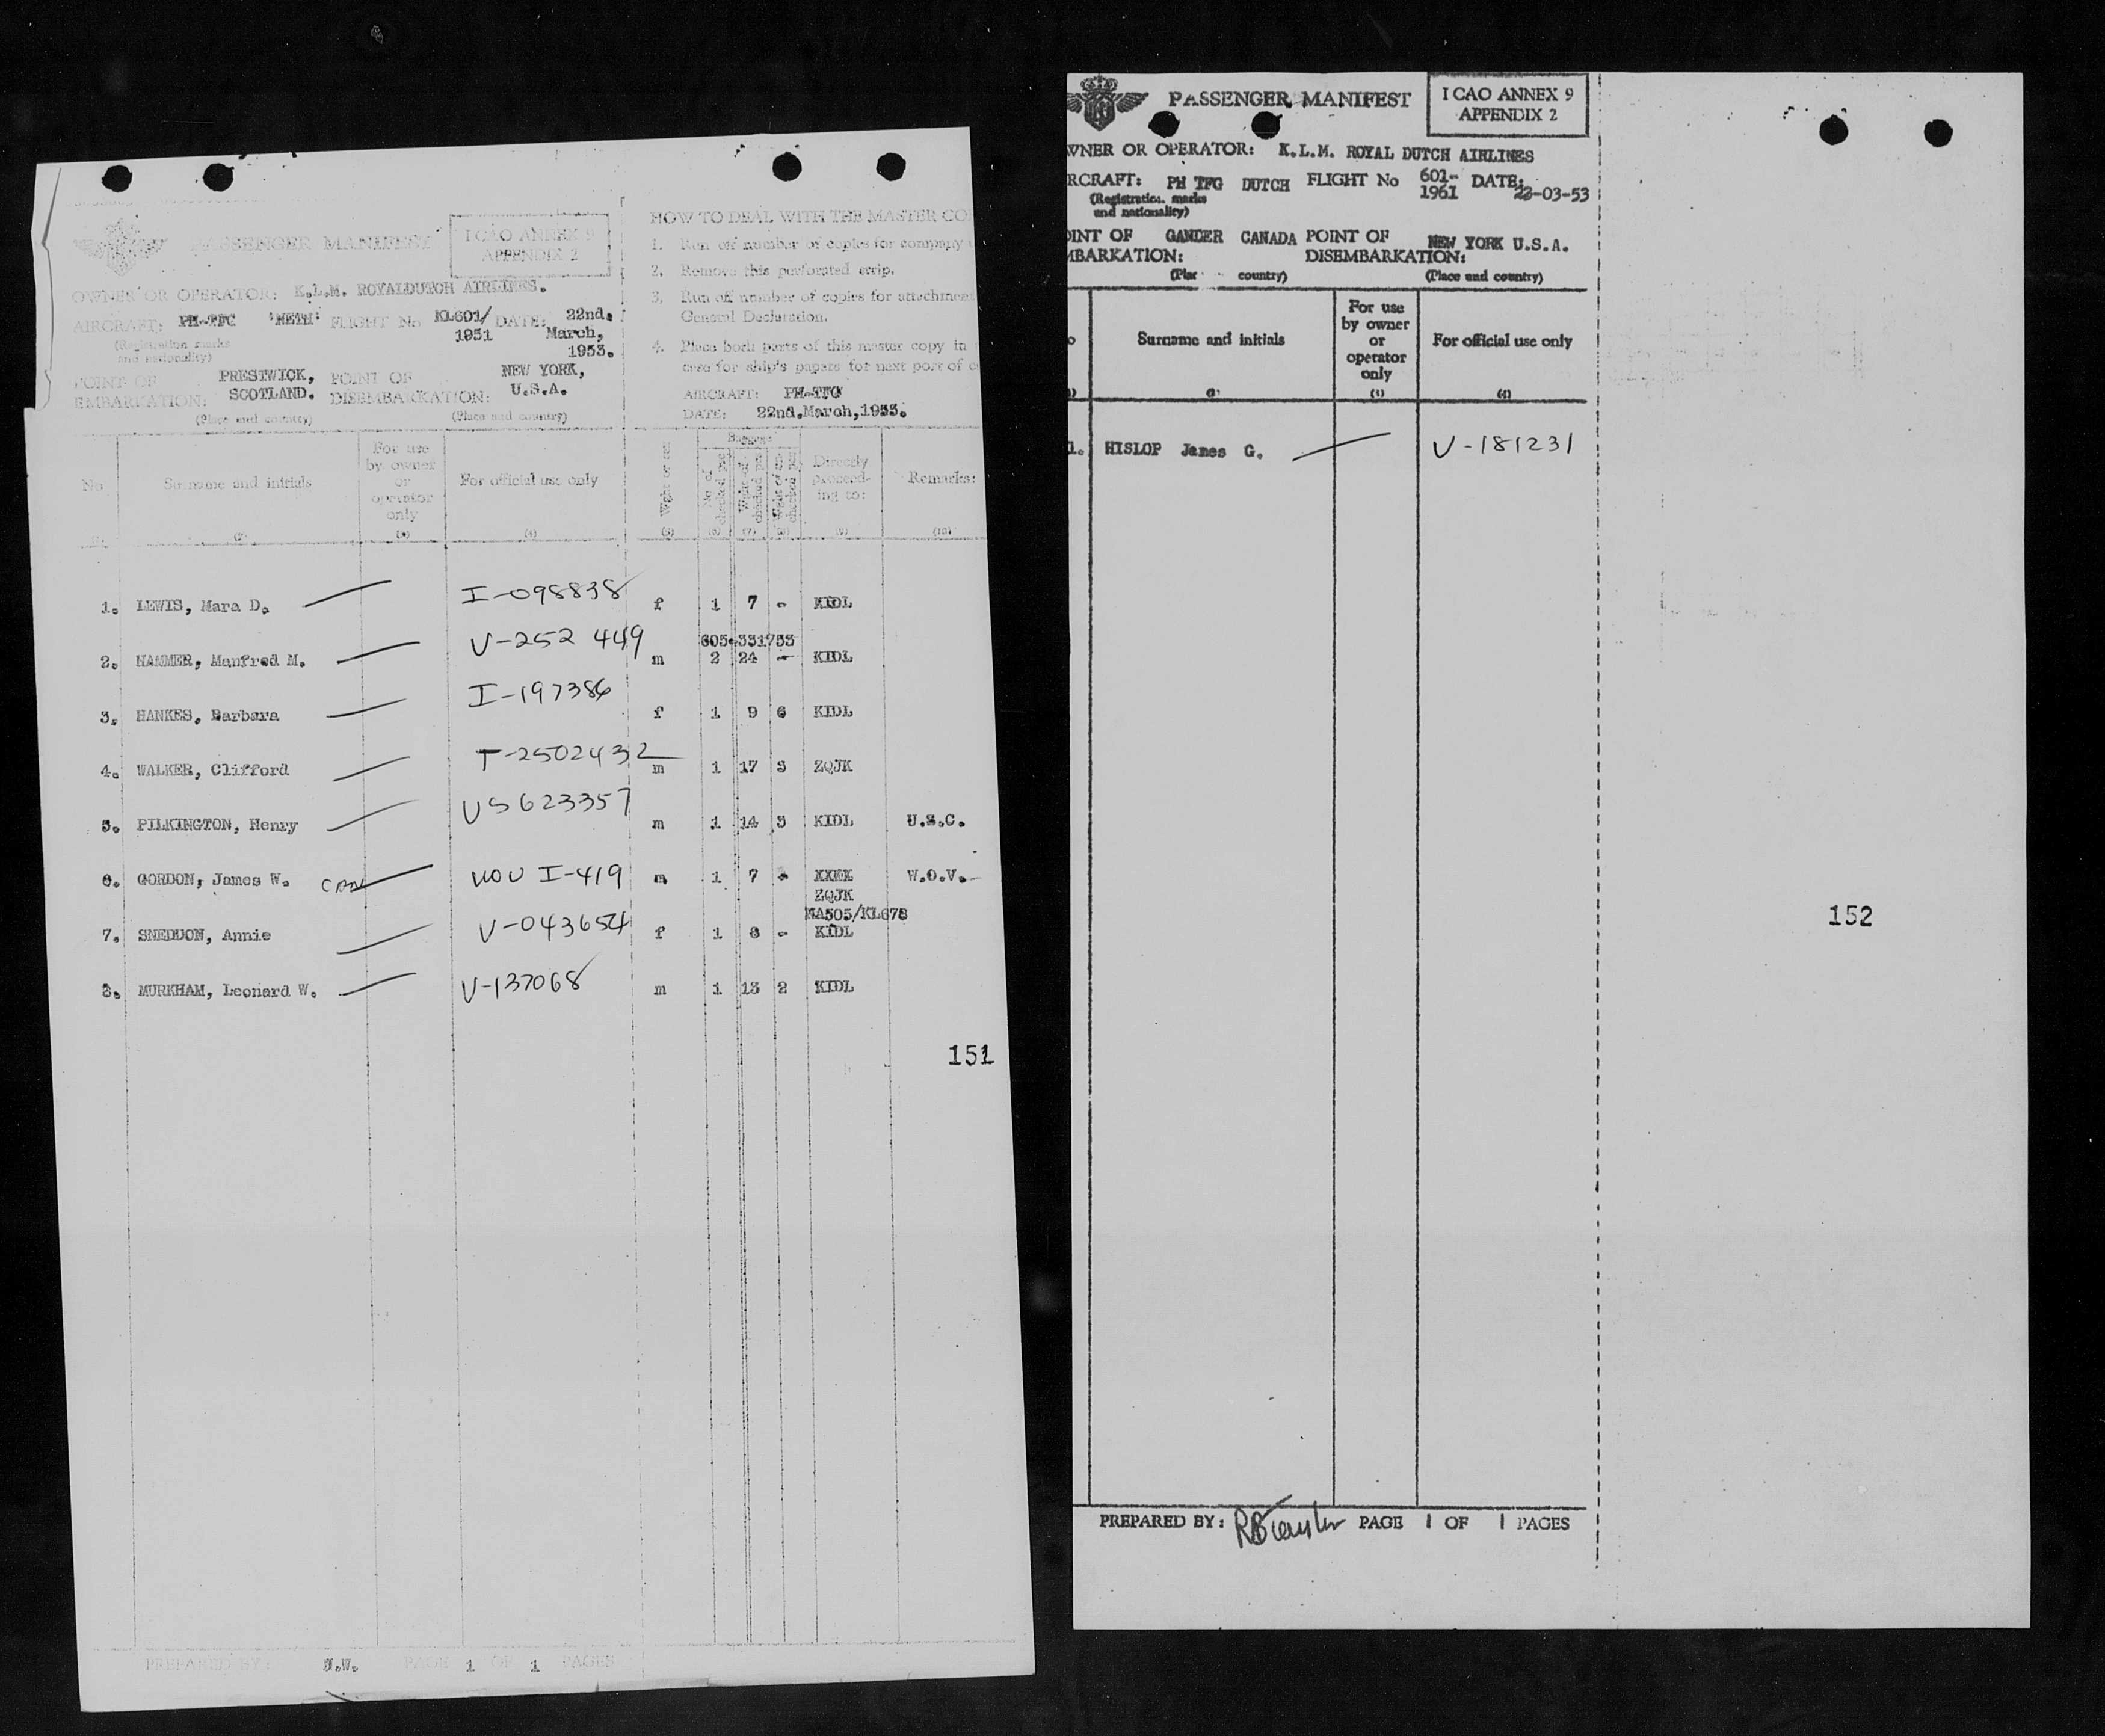 PASSENGER MANIFEST
I CAO ANNEX 9
APPENDIX 2
OWNER OR OPERATOR: K.L.M. ROYALDUTCH AIRLINES.
AIRCRAFT: PH-TFG FLIGHT No KL601/ 1951 DATE: 22nd. March, 1953.
(Registration marks and nationality)
POINT OF EMBARKATION: PRESTWICK, SCOTLAND. POINT OF DISEMBARKATION: NEW YORK, U.S.A.
(Place and country) (Place and country)
HOW TO DEAL WITH THE MASTER CO
1. Run off number of copies for company
2. Remove this perforated strip.
3. Run off number of copies for attachment
General Declaration.
4. Place both parts of this master copy in
case for ship's papers for next port of c
AIRCRAFT: PH-TFG
DATE: 22nd.March,1953.
No Surname and initials For use by owner or operator only For official use only Directly proceeding to: Remarks:
(2) (3) (4) (5) (6) (7) (8) (9) (10)
1. LEWIS, Mara D. I-098838 f 1 7 - KIDL
605-331753
2. HAMMER, Manfred M. V-252 449 m 2 24 - KIDL
3. HANKES, Barbara I-197386 f 1 9 6 KIDL
4. WALKER, Clifford T-2502432 m 1 17 5 ZQJK
5. PILKINGTON, Henry US 623357 m 1 14 3 KIDL U.S.C.
6. GORDON, James W. I-419 m 1 7 - W.O.V.
ZQJK
MA505/KL678
7. SNEDDON, Annie V-043654 f 1 8 - KIDL
8. MURKHAM, Leonard W. V-137068 m 1 13 2 KIDL
151
PREPARED BY: PAGE 1 OF 1 PAGES
PASSENGER MANIFEST
I CAO ANNEX 9
APPENDIX 2
WNER OR OPERATOR: K.L.M. ROYAL DUTCH AIRLINES
RCRAFT: PH TFG DUTCH FLIGHT No 601- 1961 DATE: 22-03-53
(Registration marks and nationality)
OINT OF MBARKATION: GANDER CANADA POINT OF DISEMBARKATION: NEW YORK U.S.A.
country) (Place and country)
o Surname and initials For use by owner or operator only For official use only
1. HISLOP James G. V-181231
152
PREPARED BY: PAGE 1 OF 1 PAGES